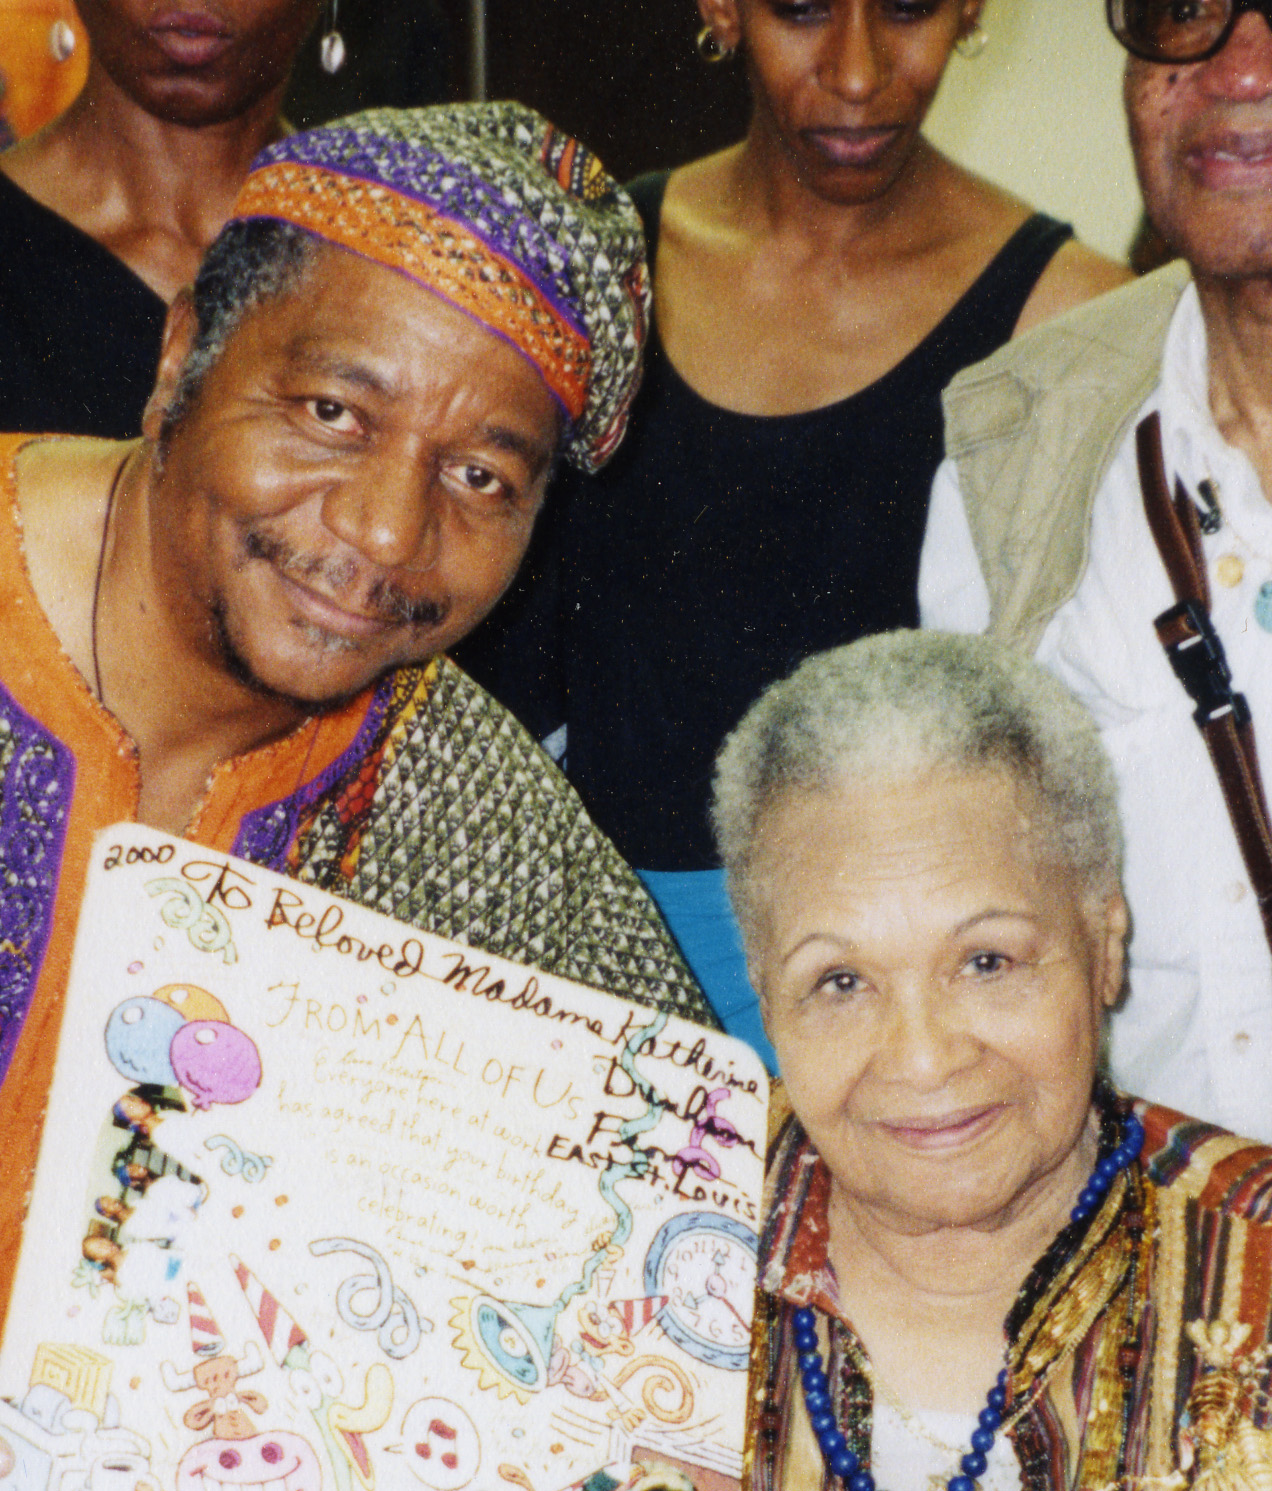 2000 To Beloved Madame Katherine
Dunham
From
EAST St. Louis
FROM ALL OF US
Everyone here at work
has agreed that your birthday
is an occasion worth
celebrating,